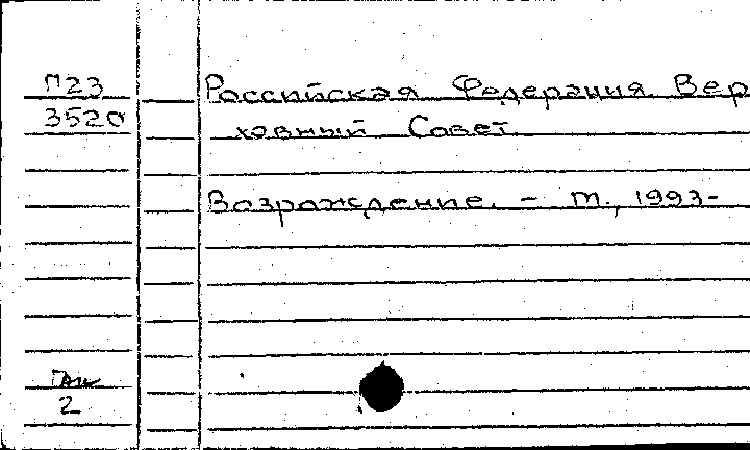 П23 Российская Федерация. Вер
3520 ховный Совет
Возрождение. – М., 1993-
2